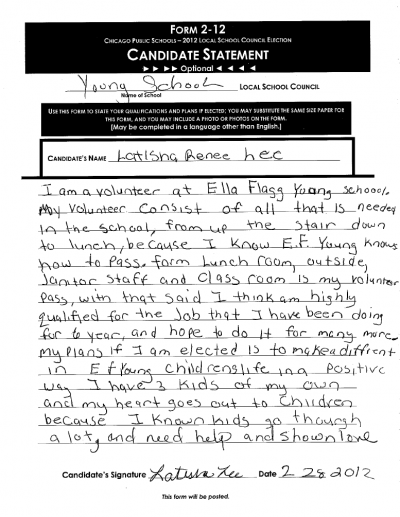 FORM 2-12
CHICAGO PUBLIC SCHOOLS – 2012 LOCAL SCHOOL COUNCIL ELECTION
CANDIDATE STATEMENT
► ► ► ► Optional ◄ ◄ ◄ ◄
Young School LOCAL SCHOOL COUNCIL
Name of School
USE THIS FORM TO STATE YOUR QUALIFICATIONS AND PLANS IF ELECTED; YOU MAY SUBSTITUTE THE SAME SIZE PAPER FOR
THIS FORM, AND YOU MAY INCLUDE A PHOTO OR PHOTOS ON THE FORM.
[May be completed in a language other than English.]
CANDIDATE'S NAME Latisha Renee Lee
I am a volunteer at Ella Flagg Young school.
My volunteer consist of all that is needed
in the school, from up the stair down
to lunch, because I know E.F. Young knows
how to pass. form Lunch room, outside,
Janitor staff and class room is my volunter
pass, with that said I think am highly
qualified for the Job that I have been doing
for 6 year, and hope to do it for many more.
my plans if I am elected is to make a diffrent
in E f Young childrens life in a positive
way I have 3 kids of my own
and my heart goes out to Children
because I known kids go though
a lot, and need help and shown love
Candidate's Signature Latisha Lee Date 2 28 2012
This form will be posted.